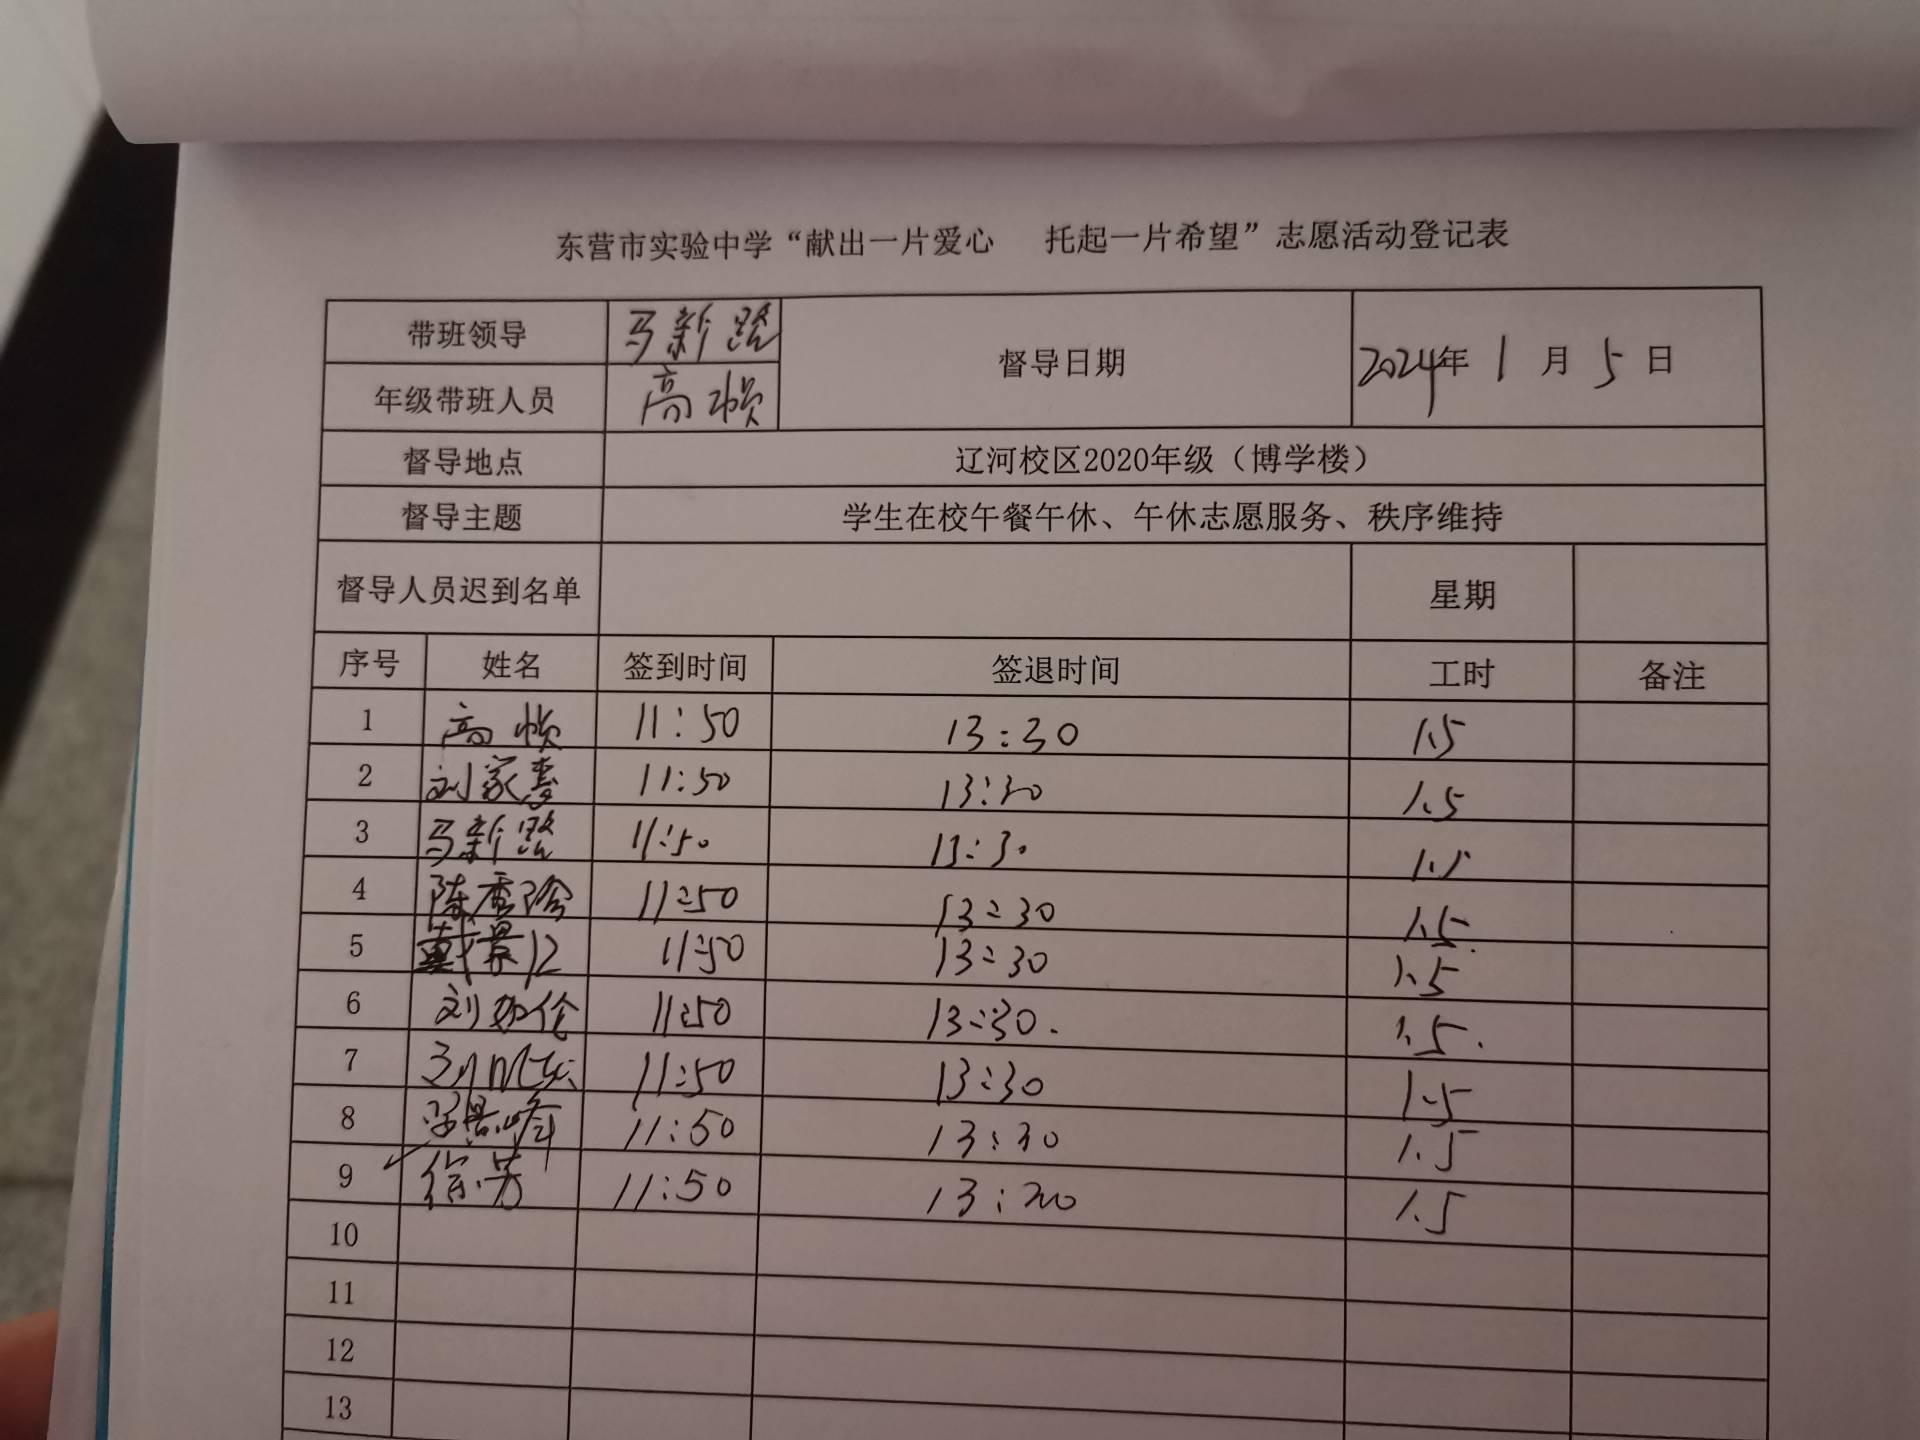 东营市实验中学“献出一片爱心 托起一片希望”志愿活动登记表
带班领导 马新路 督导日期 2024年 1 月 5 日
年级带班人员 高帧
督导地点 辽河校区2020年级（博学楼）
督导主题 学生在校午餐午休、午休志愿服务、秩序维持
督导人员迟到名单 星期
序号 姓名 签到时间 签退时间 工时 备注
1 高帧 11:50 13:30 1.5
2 刘家 11:50 13:30 1.5
3 马新路 11:50 13:30 1.5
4 陈香玲 11:50 13:30 1.5
5 戴景 11:50 13:30 1.5
6 刘伦 11:50 13:30. 1.5.
7 11:50 13:30 1.5
8 峰 11:50 13:30 1.5
9 徐芳 11:50 13:30 1.5
10
11
12
13